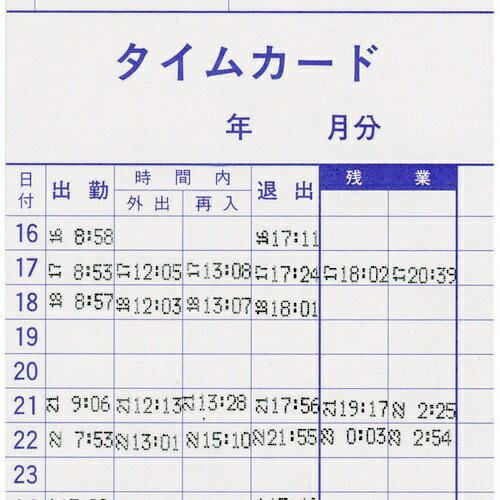 タイムカード
年 月分
日付 出勤 時間内 退出 残業
外出 再入
16 16 8:58 16 17:11
17 17 8:53 17 12:05 17 13:08 17 17:24 17 18:02 17 20:39
18 18 8:57 18 12:03 18 13:07 18 18:01
19
20
21 21 9:06 21 12:13 21 13:28 21 17:56 21 19:17 22 2:25
22 22 7:53 22 13:01 22 15:10 22 21:55 23 0:03 23 2:54
23